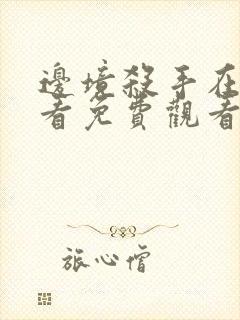 邊境殺手在
看免費觀看
旅心僧